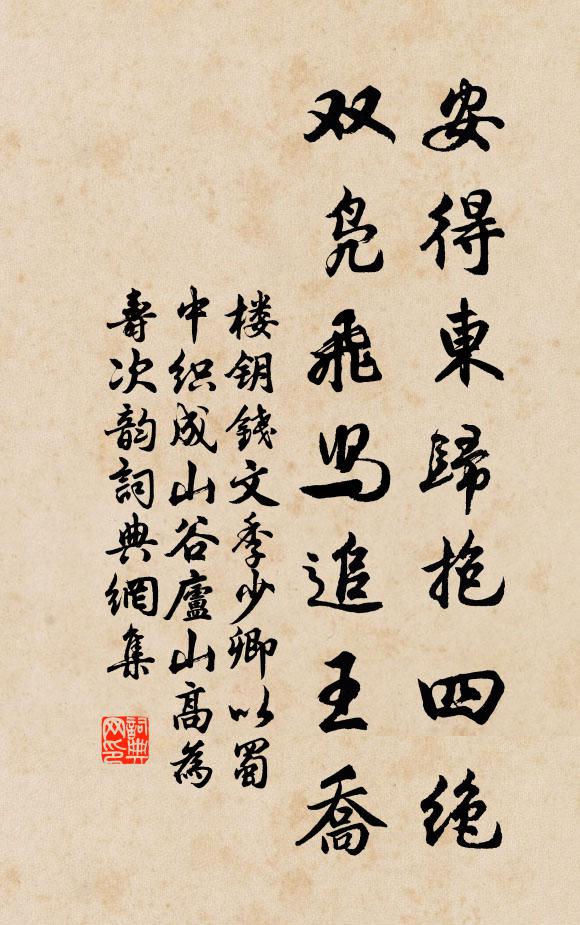 安得東歸抱四绝
双凫飛舄追王喬
楼钥錢文季少卿以蜀
中织成山谷廬山高為
壽次韵詞典網集
詞典网印